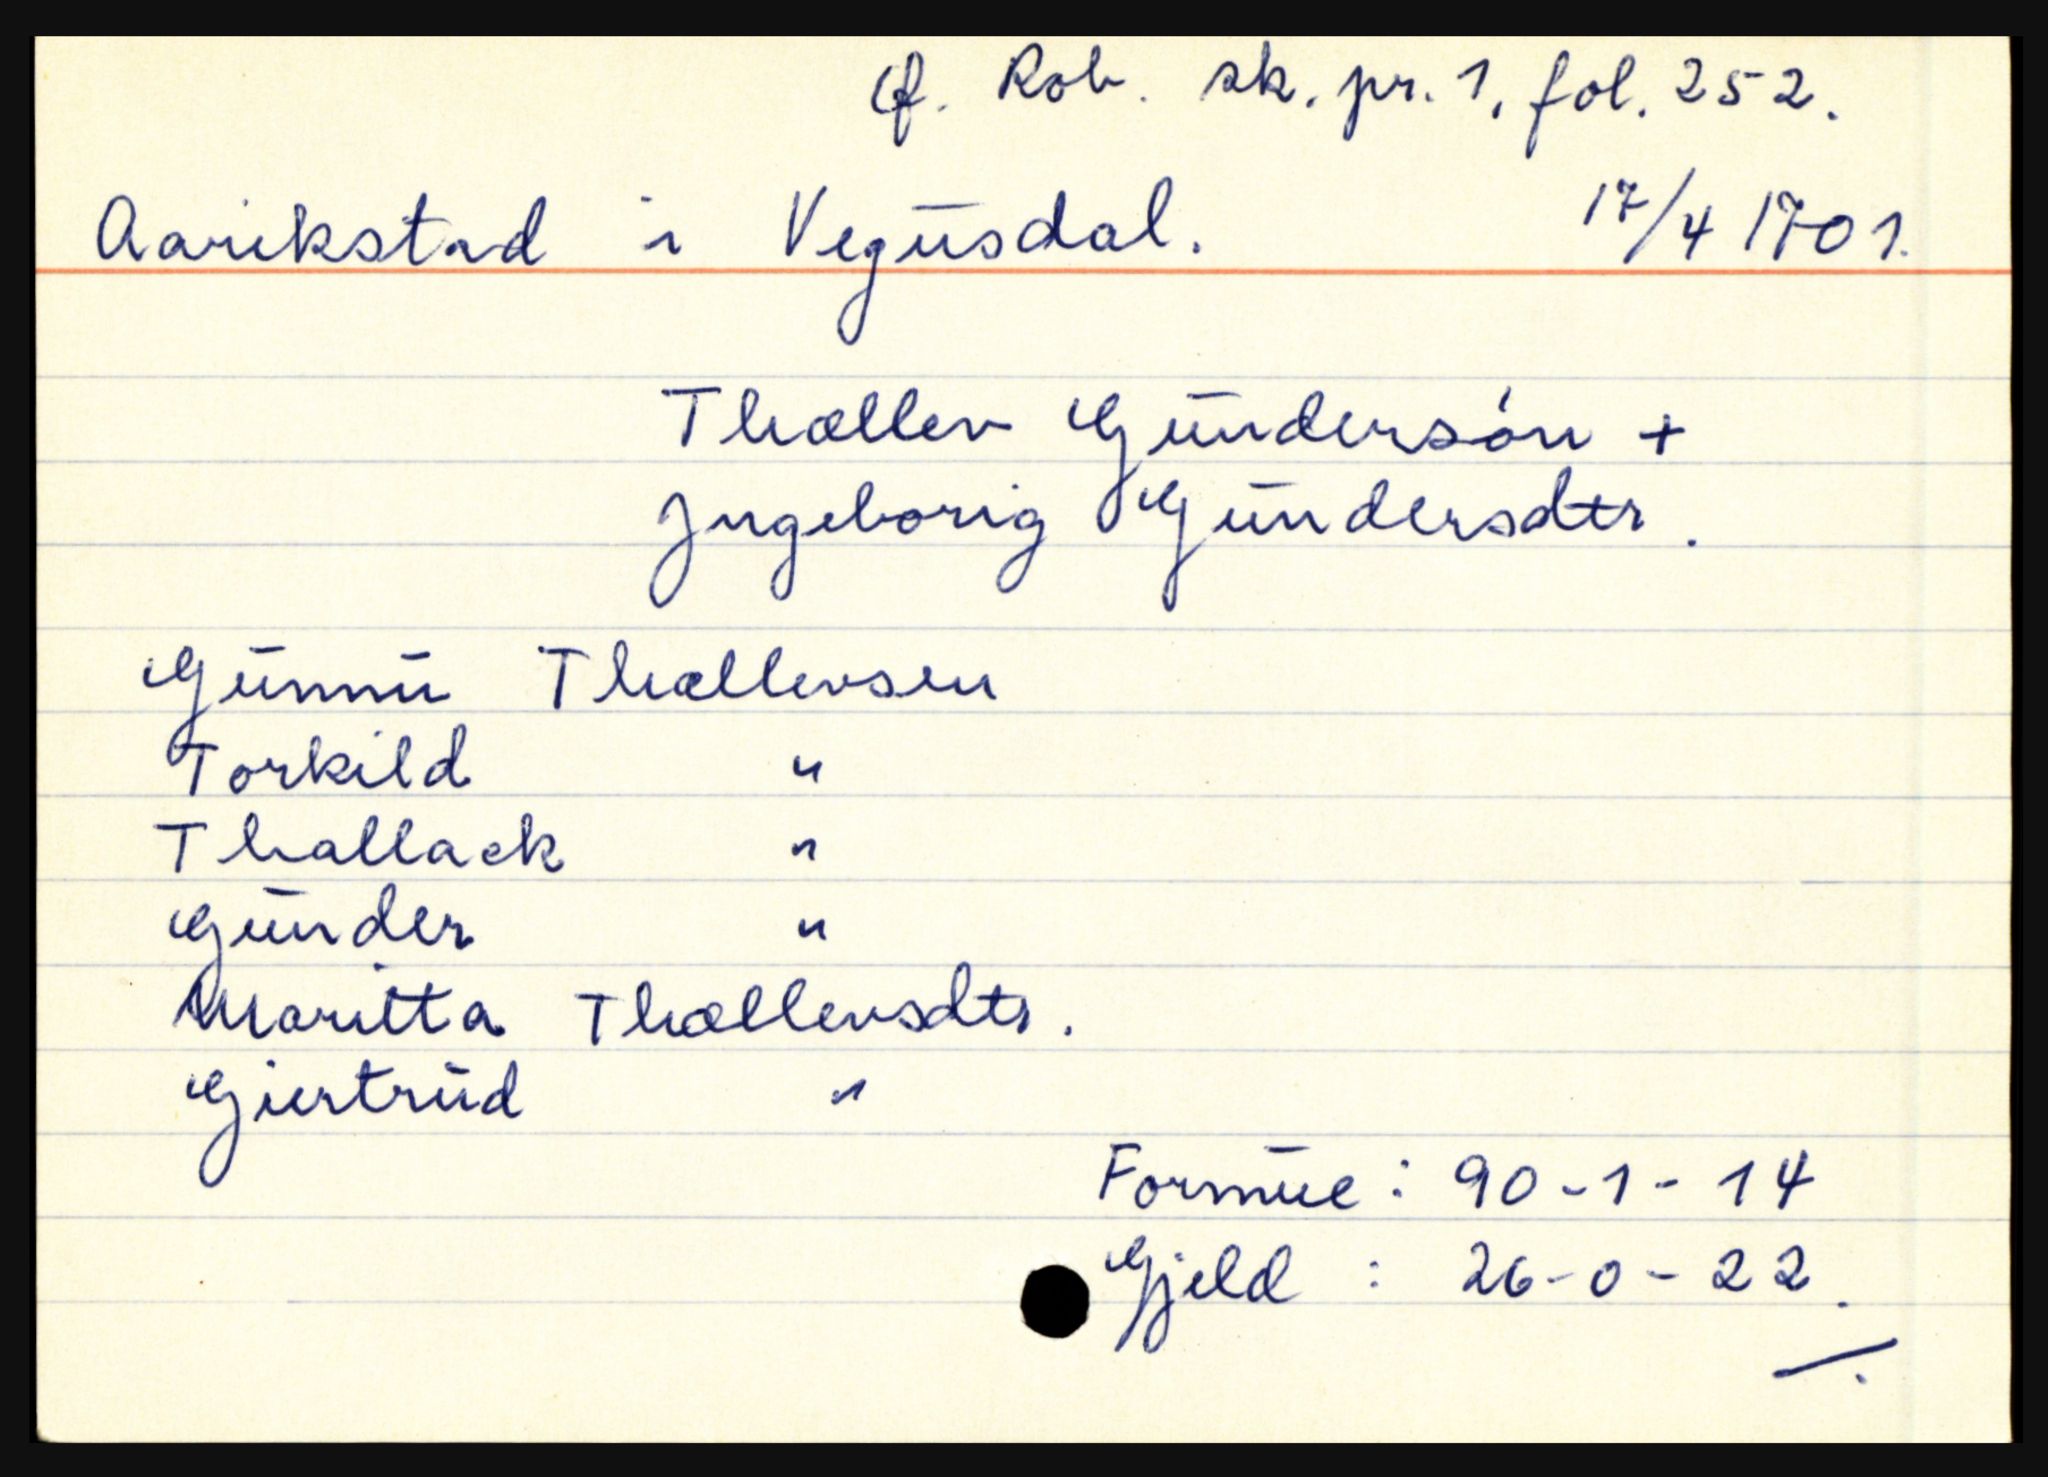 cf. Rob. sk. pr. 1, fol. 252.
Aarikstad i Vegusdal. 17/4 1701.
Thællev Gundersón +
Jngeborig Gundersdtr.
Gunnu Thællevsen
Torkild "
Thallack "
Gunder "
Maritta Thællevsdtr.
Giertrud "
Formue: 90-1-14
Gjeld : 26-0-22.